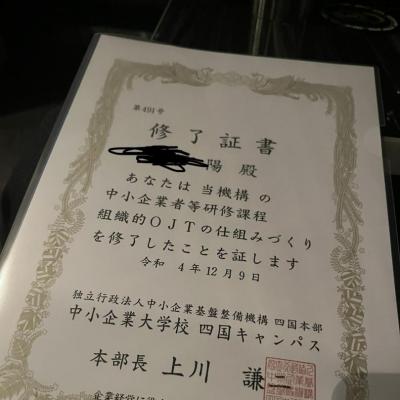 第491号
修了証書
陽 殿
あなたは当機構の
中小企業者等研修課程
組織的OJTの仕組みづくり
を修了したことを証します
令和 4年12月9日
独立行政法人中小企業基盤整備機構 四国本部
中小企業大学校 四国キャンパス
本部長 上川 謙二
企業経営に役